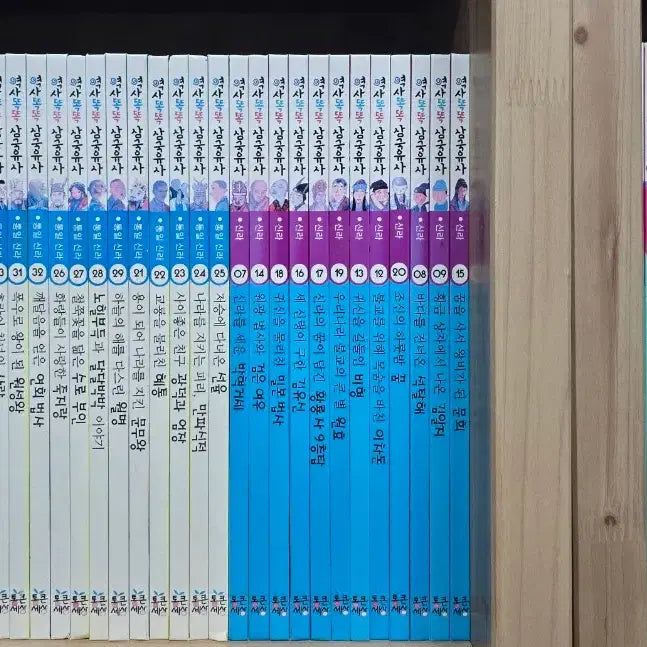 역사똑똑 삼국유사 통일 신라 31 왕이 된 원성왕
역사똑똑 삼국유사 통일 신라 32 깨달음을 얻은 법사
역사똑똑 삼국유사 통일 신라 26 화랑들이 사랑한 죽지랑
역사똑똑 삼국유사 통일 신라 27 철쭉꽃을 닮은 수로 부인
역사똑똑 삼국유사 통일 신라 28 노힐부득과 달달박박 이야기
역사똑똑 삼국유사 통일 신라 29 하늘의 해를 다스린 월명
역사똑똑 삼국유사 통일 신라 21 용이 되어 나라를 지킨 문무왕
역사똑똑 삼국유사 통일 신라 22 물리친 혜통
역사똑똑 삼국유사 통일 신라 23 사이좋은 친구 광덕과 엄장
역사똑똑 삼국유사 통일 신라 24 나라를 지키는 피리, 만파식적
역사똑똑 삼국유사 통일 신라 25 저승에 다녀온 선율
역사똑똑 삼국유사 신라 07 신라를 세운 박혁거세
역사똑똑 삼국유사 신라 14 원광 법사와 검은 여우
역사똑똑 삼국유사 신라 18 귀신을 물리친 밀본 법사
역사똑똑 삼국유사 신라 16 세 신령이 구한 김유신
역사똑똑 삼국유사 신라 17 신라의 꿈이 담긴 황룡사 9층탑
역사똑똑 삼국유사 신라 19 우리나라 불교의 큰 별 원효
역사똑똑 삼국유사 신라 13 귀신을 비형
역사똑똑 삼국유사 신라 12 불교를 위해 목숨을 바친 이차돈
역사똑똑 삼국유사 신라 20 조신의 하룻밤 꿈
역사똑똑 삼국유사 신라 08 바다를 건너온 석탈해
역사똑똑 삼국유사 신라 09 황금 상자에서 나온 김알지
역사똑똑 삼국유사 신라 15 꿈을 사서 왕비가 된 문희